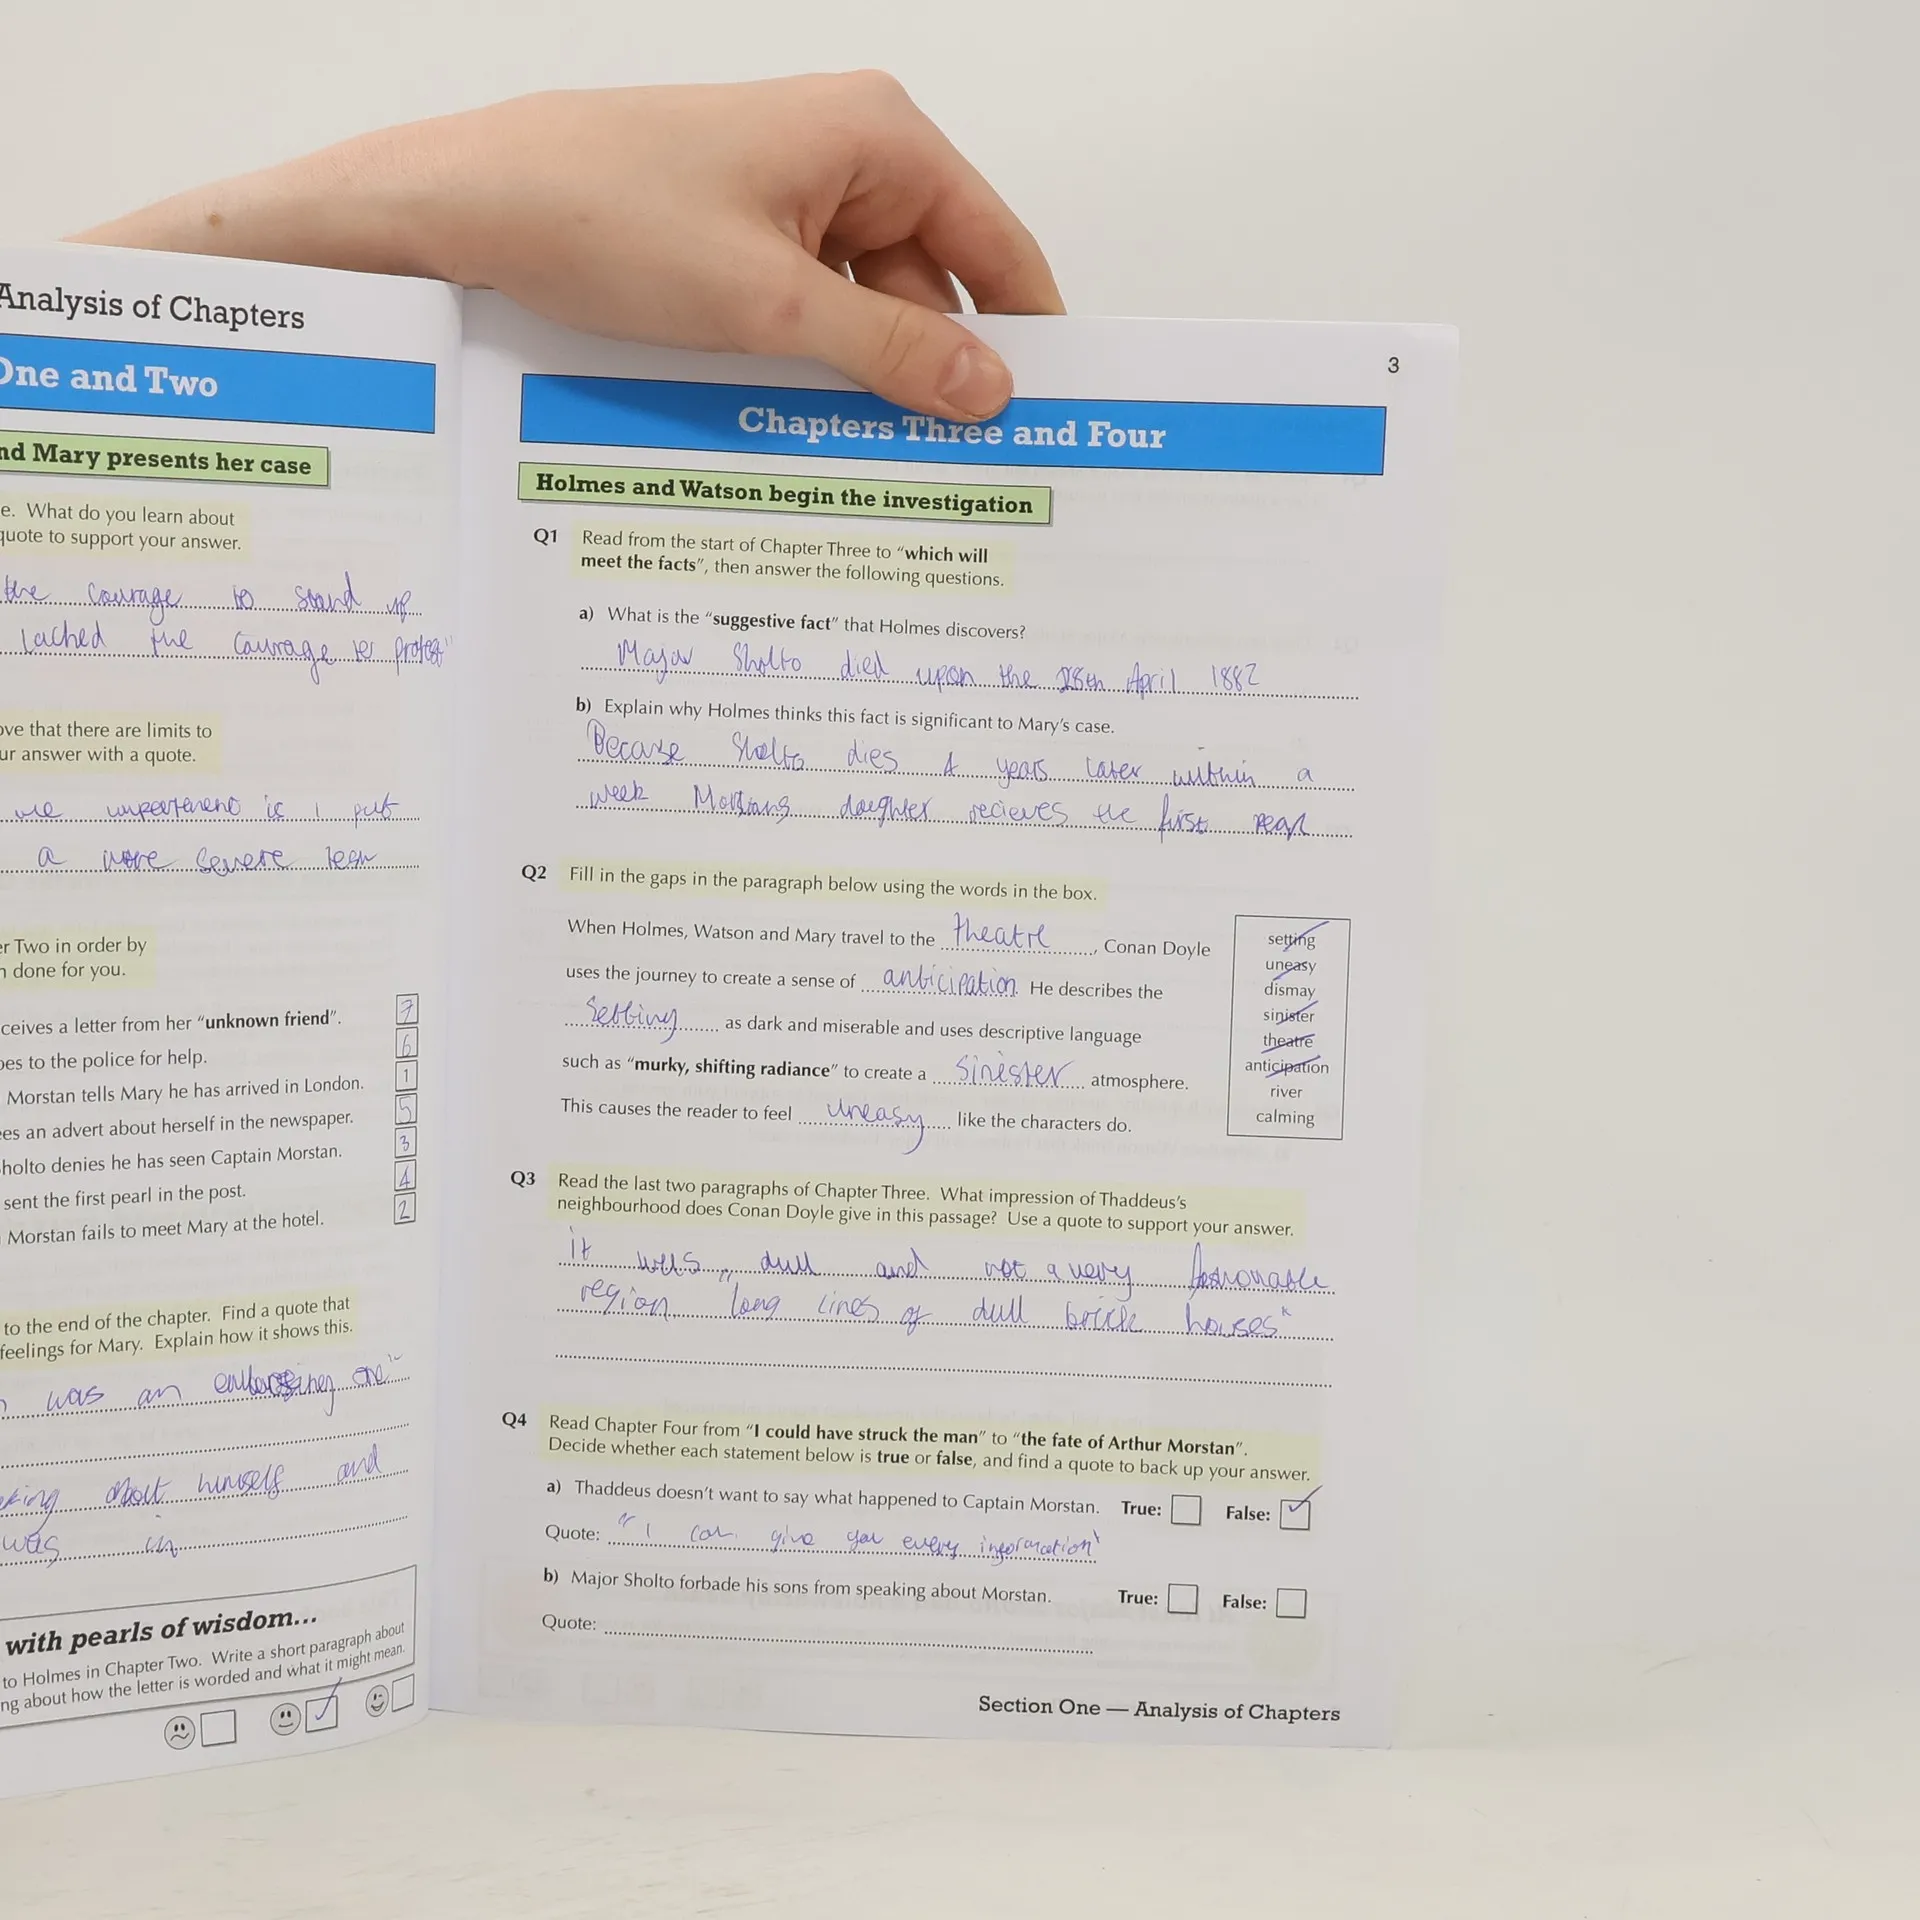 Analysis of Chapters
One and Two
nd Mary presents her case
e. What do you learn about
quote to support your answer.
the courage to stand up
lached the courage to protest"
ove that there are limits to
ur answer with a quote.
me is i put
a more severe
er Two in order by
n done for you.
ceives a letter from her "unknown friend". 7
oes to the police for help. 6
Morstan tells Mary he has arrived in London. 1
ees an advert about herself in the newspaper. 5
Sholto denies he has seen Captain Morstan. 3
sent the first pearl in the post. 4
Morstan fails to meet Mary at the hotel. 2
to the end of the chapter. Find a quote that
feelings for Mary. Explain how it shows this.
was an one"
king about himself and
was in
with pearls of wisdom...
to Holmes in Chapter Two. Write a short paragraph about
ng about how the letter is worded and what it might mean.
3
Chapters Three and Four
Holmes and Watson begin the investigation
Q1 Read from the start of Chapter Three to "which will
meet the facts", then answer the following questions.
a) What is the "suggestive fact" that Holmes discovers?
Major Sholto died upon the 28th April 1882
b) Explain why Holmes thinks this fact is significant to Mary's case.
Because Sholto dies 4 years later within a
week daughter recieves the first
Q2 Fill in the gaps in the paragraph below using the words in the box.
When Holmes, Watson and Mary travel to the theatre, Conan Doyle
uses the journey to create a sense of anticipation. He describes the
Setting as dark and miserable and uses descriptive language
such as "murky, shifting radiance" to create a sinister atmosphere.
This causes the reader to feel uneasy like the characters do.
setting
uneasy
dismay
sinister
theatre
anticipation
river
calming
Q3 Read the last two paragraphs of Chapter Three. What impression of Thaddeus's
neighbourhood does Conan Doyle give in this passage? Use a quote to support your answer.
it was dull and not a very
region "long lines of dull brick houses"
Q4 Read Chapter Four from "I could have struck the man" to "the fate of Arthur Morstan".
Decide whether each statement below is true or false, and find a quote to back up your answer.
a) Thaddeus doesn't want to say what happened to Captain Morstan. True: False:
Quote: "I can give you every information"
b) Major Sholto forbade his sons from speaking about Morstan. True: False:
Quote:
Section One — Analysis of Chapters